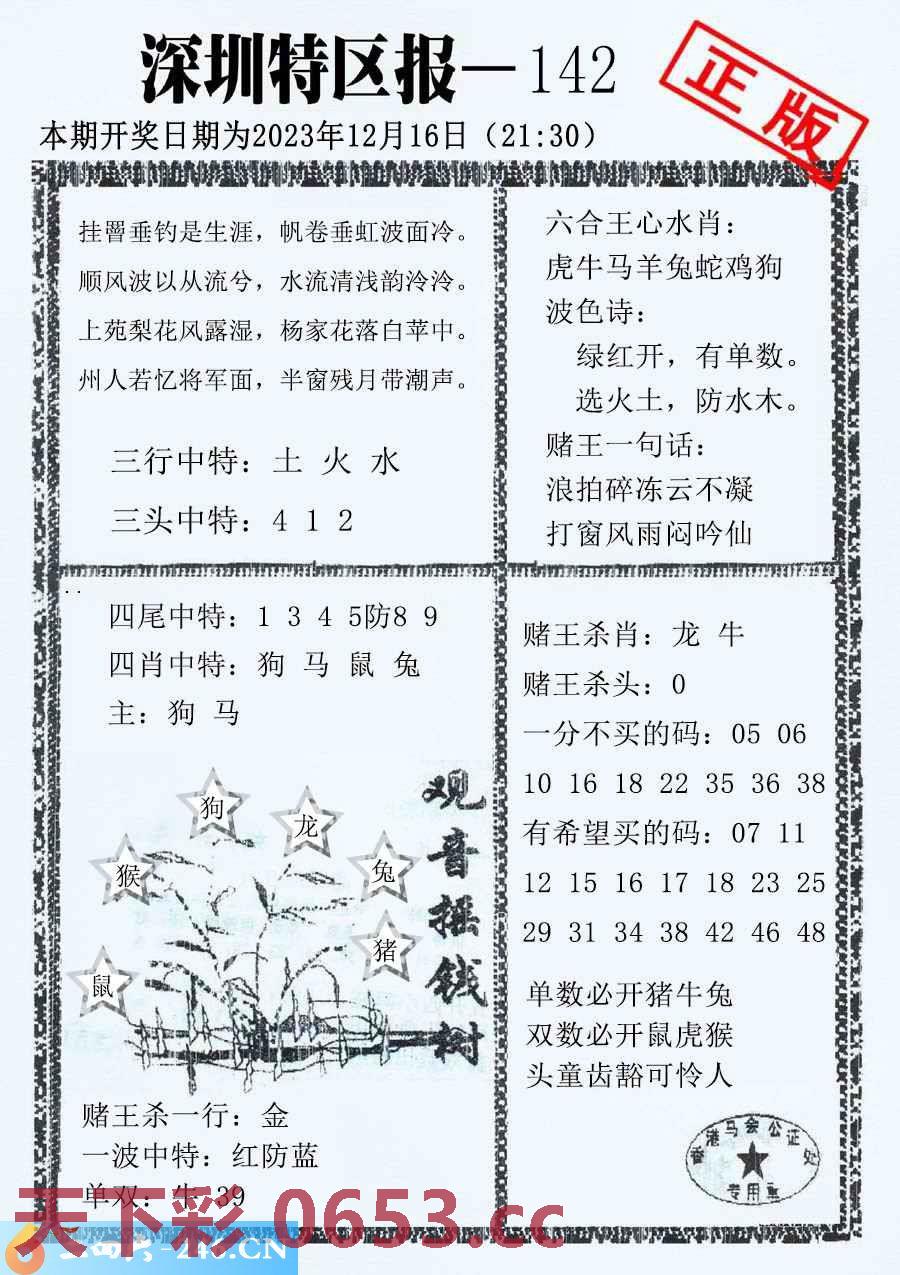 深圳特区报—142
正版
本期开奖日期为2023年12月16日（21:30）
挂罾垂钓是生涯，帆卷垂虹波面冷。
顺风波以从流兮，水流清浅韵泠泠。
上苑梨花风露湿，杨家花落白苹中。
州人若忆将军面，半窗残月带潮声。
三行中特：土 火 水
三头中特：4 1 2
六合王心水肖：
虎牛马羊兔蛇鸡狗
波色诗：
绿红开，有单数。
选火土，防水木。
赌王一句话：
浪拍碎冻云不凝
打窗风雨闷吟仙
四尾中特：1 3 4 5防8 9
四肖中特：狗 马 鼠 兔
主：狗 马
狗
龙
猴
兔
猪
鼠
观音摇钱树
赌王杀一行：金
一波中特：红防蓝
单双：牛 39
赌王杀肖：龙 牛
赌王杀头：0
一分不买的码：05 06
10 16 18 22 35 36 38
有希望买的码：07 11
12 15 16 17 18 23 25
29 31 34 38 42 46 48
单数必开猪牛兔
双数必开鼠虎猴
头童齿豁可怜人
香港马会公证处
专用章
天下彩 0653.cc